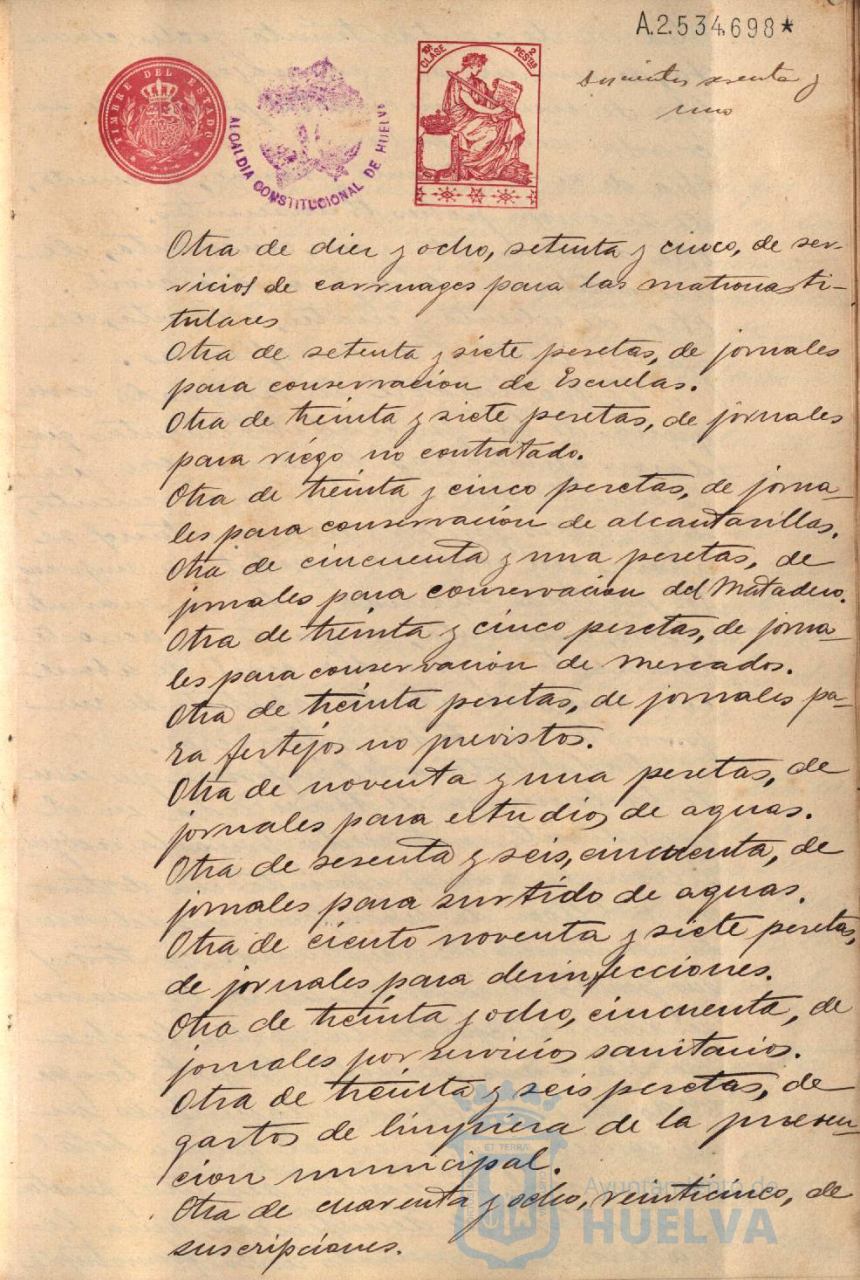 A.2.534.698*
10ª CLASE
2 PESTAS
TIMBRE DEL ESTADO
ALCALDIA CONSTITUCIONAL DE HUELVA
sesenta y
uno
Otra de diez y ocho, setenta y cinco, de ser-
vicios de carruages para las matronas ti-
tulares
Otra de setenta y siete pesetas, de jornales
para conservacion de Escuelas.
Otra de treinta y siete pesetas, de jornales
para riego no contratado.
Otra de treinta y cinco pesetas, de jorna-
les para conservación de alcantarillas.
Otra de cincuenta y una pesetas, de
jornales para conservacion del Matadero.
Otra de treinta y cinco pesetas, de jorna-
les para conservación de mercados.
Otra de treinta pesetas, de jornales pa-
ra festejos no previstos.
Otra de noventa y una pesetas, de
jornales para estudios de aguas.
Otra de sesenta y seis, cincuenta, de
jornales para surtido de aguas.
Otra de ciento noventa y siete pesetas,
de jornales para desinfecciones.
Otra de treinta y ocho, cincuenta, de
jornales por servicios sanitarios.
Otra de treinta y seis pesetas, de
gastos de limpieza de la preven-
cion municipal.
Otra de cuarenta y ocho, veinticinco, de
suscripciones.
ET TERRA
Ayuntamiento de
HUELVA